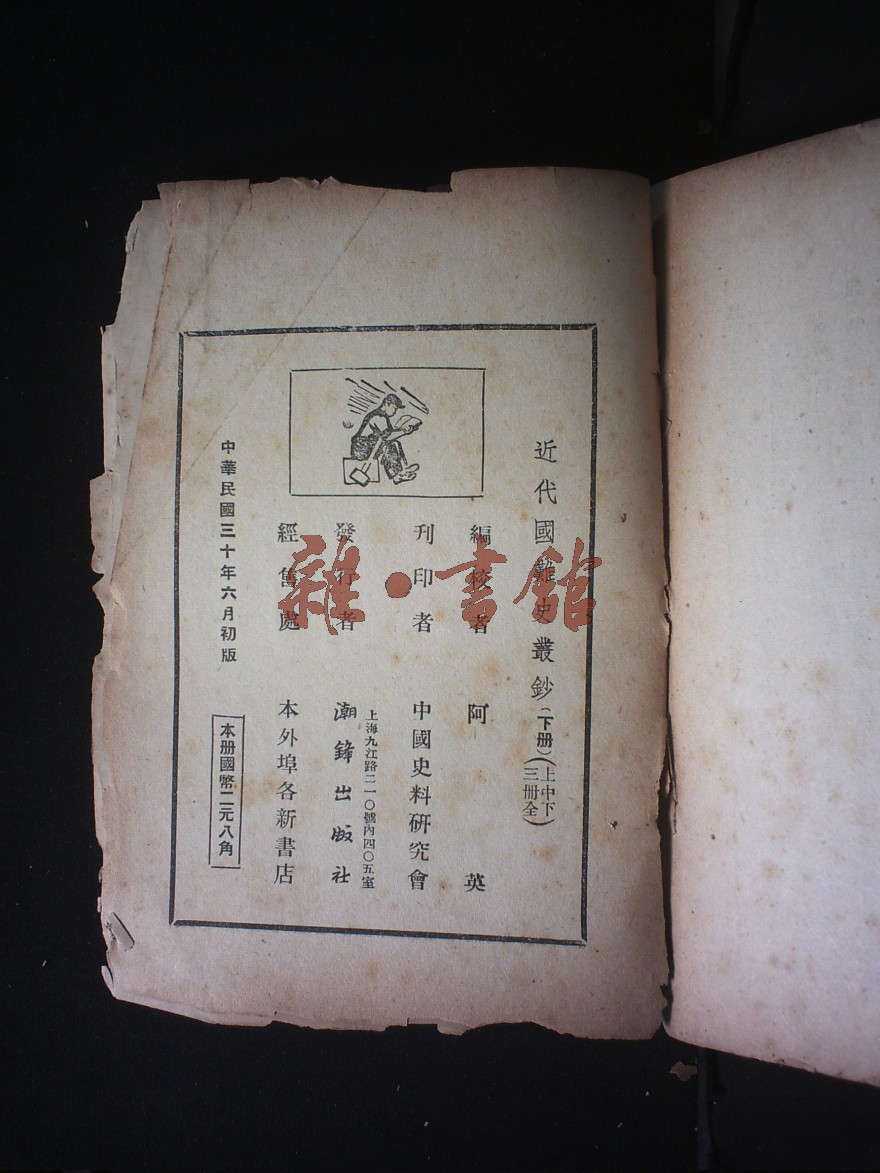 近代國難史叢鈔(下册)(上中下三冊全)
編校者 阿英
刊印者 中國史料研究會
上海九江路二一〇號內四〇五室
發行者 潮鋒出版社
經售處 本外埠各新書店
中華民國三十年六月初版
本册國幣二元八角
雜·書館